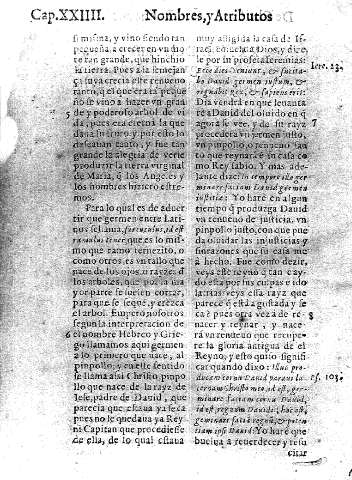 Cap.XXIIII. Nombres, y Atributos
si misma, y vino siendo tan
pequeña a crecer en vn dia
te tan grande, que hinchio
la tierra. Pues a la semejan
ça suya crecia este renueuo
tanto, q̃ el que era tã peque
ño se vino a hazer vn gran
de y poderoso arbol de vi
da, pues era cierto la que
daua su fruto y por esto lo
desseauan tanto, y fue tan
grande la alegria de verle
produzir la tierra virginal
de Maria, q̃ los Angeles y
los hombres hizieron estre
mos.
Para lo qual es de aduer
tir que germen entre Lati
nos se llama,
que es lo mis
mo que ramo ternezito, o
como otros, es vn tallo que
nace de los ojos o rayzes d̃
los arboles, que por la ma
yor parte se suelen cortar,
para que se seque, y crezca
el arbol. Empero nosotros
segun la interpretacion de
el nombre Hebreo y Grie
go llamamos aqui germen
a lo primero que nace, al
pinpollo, y en este sentido
se llama assi Christo, pinpo
llo que nace de la rayz de
Iesse, padre de Dauid, que
parecia que estaua ya seca
pues no le quedaua ya Rey
ni Capitan que procediesse
de ella, de lo qual estaua
5
6
muy affligida la casa de Is
rael, consuela a Dios, y dize
le por su profeta Ieremias:
Ecce dies veniunt, & suscita
bo Dauid germen iustum, &
regnabit rex, & sapiens erit:
Dia vendrà en que leuanta
re a Dauid del oluido en q̃
agora le veo, y de su rayz
procedera vn germen justo,
vn pinpollo, o renueuo tan
to que reynarà en su casa co
mo Rey sabio. Y mas ade
lante dize: in tempore illo ger
minare faciam Dauid germen
iustitiæ. Yo harè en algun
tiempo q̃ produzga Dauid
vn renueuo de justicia, vn
pinpollo justo, con que pue
da oluidar las injusticias y
sinrazones que su casa me
à hecho. Fue como dezir,
veys este reyno q̃ tan cay
do està por sus culpas e ido
latrias veys esta rayz que
parece q̃ està agustada y se
ca? pues otra vez à de re
nacer y reynar, y nacerà
vn renueuo que recupe
re la gloria antigua de el
Reyno, y esto quiso signifi
car quando dixo: Illuc pro
ducam cornu Dauid, paraui lu
cernam Christo meo, id est, ger
minare faciam cornu Dauid,
id est, regnum Dauid: hoc est,
germinare faciã regnũ, & po
tentiam ipsi Dauid. Yo harè que
buelua a reuerdecer y resu
citar
Iere. 23.
7
8
Ps. 103.